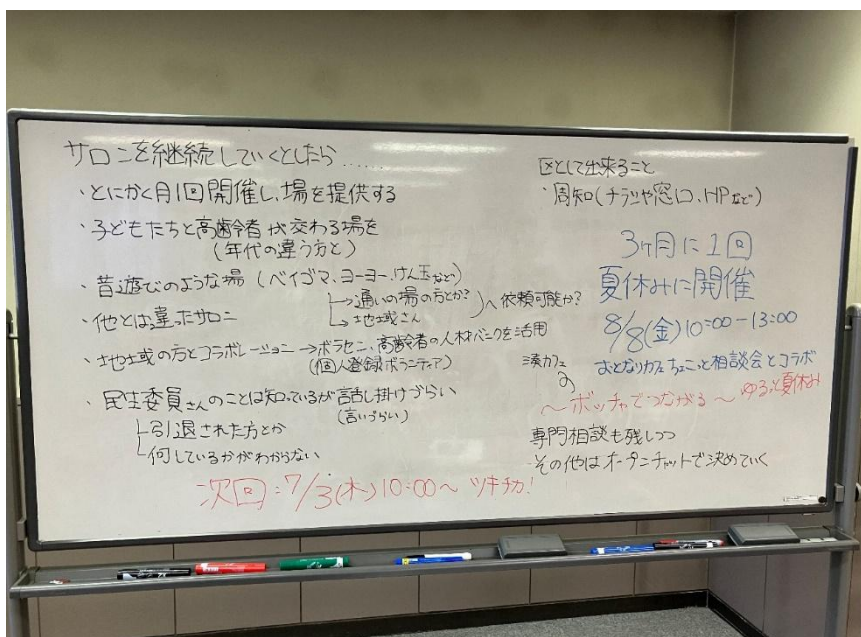 サロンを継続していくとしたら……
・とにかく月1回開催し、場を提供する
・子どもたちと高齢者が交わる場を
(年代の違う方と)
・昔遊びのような場(ベイゴマ、ヨーヨー、けん玉など)
・他とは違ったサロン
→通いの場の方とか?
→地域さん
依頼可能か?
・地域の方とコラボレーション→ボラセン、高齢者の人材バンクを活用
(個人登録ボランティア)
・民生委員さんのことは知っているが話し掛けづらい
(言いづらい)
引退された方とか
何しているかがわからない
次回:7/3(木)10:00〜 ツキチカ!
区として出来ること
・周知(チラシや窓口、HPなど)
3ヶ月に1回
夏休みに開催
8/8(金)10:00-13:00
湊カフェ
の
おとなりカフェちょこっと相談会とコラボ
〜ボッチャでつながる〜ゆるっと夏休み
専門相談も残しつつ
・その他はオープンチャットで決めていく